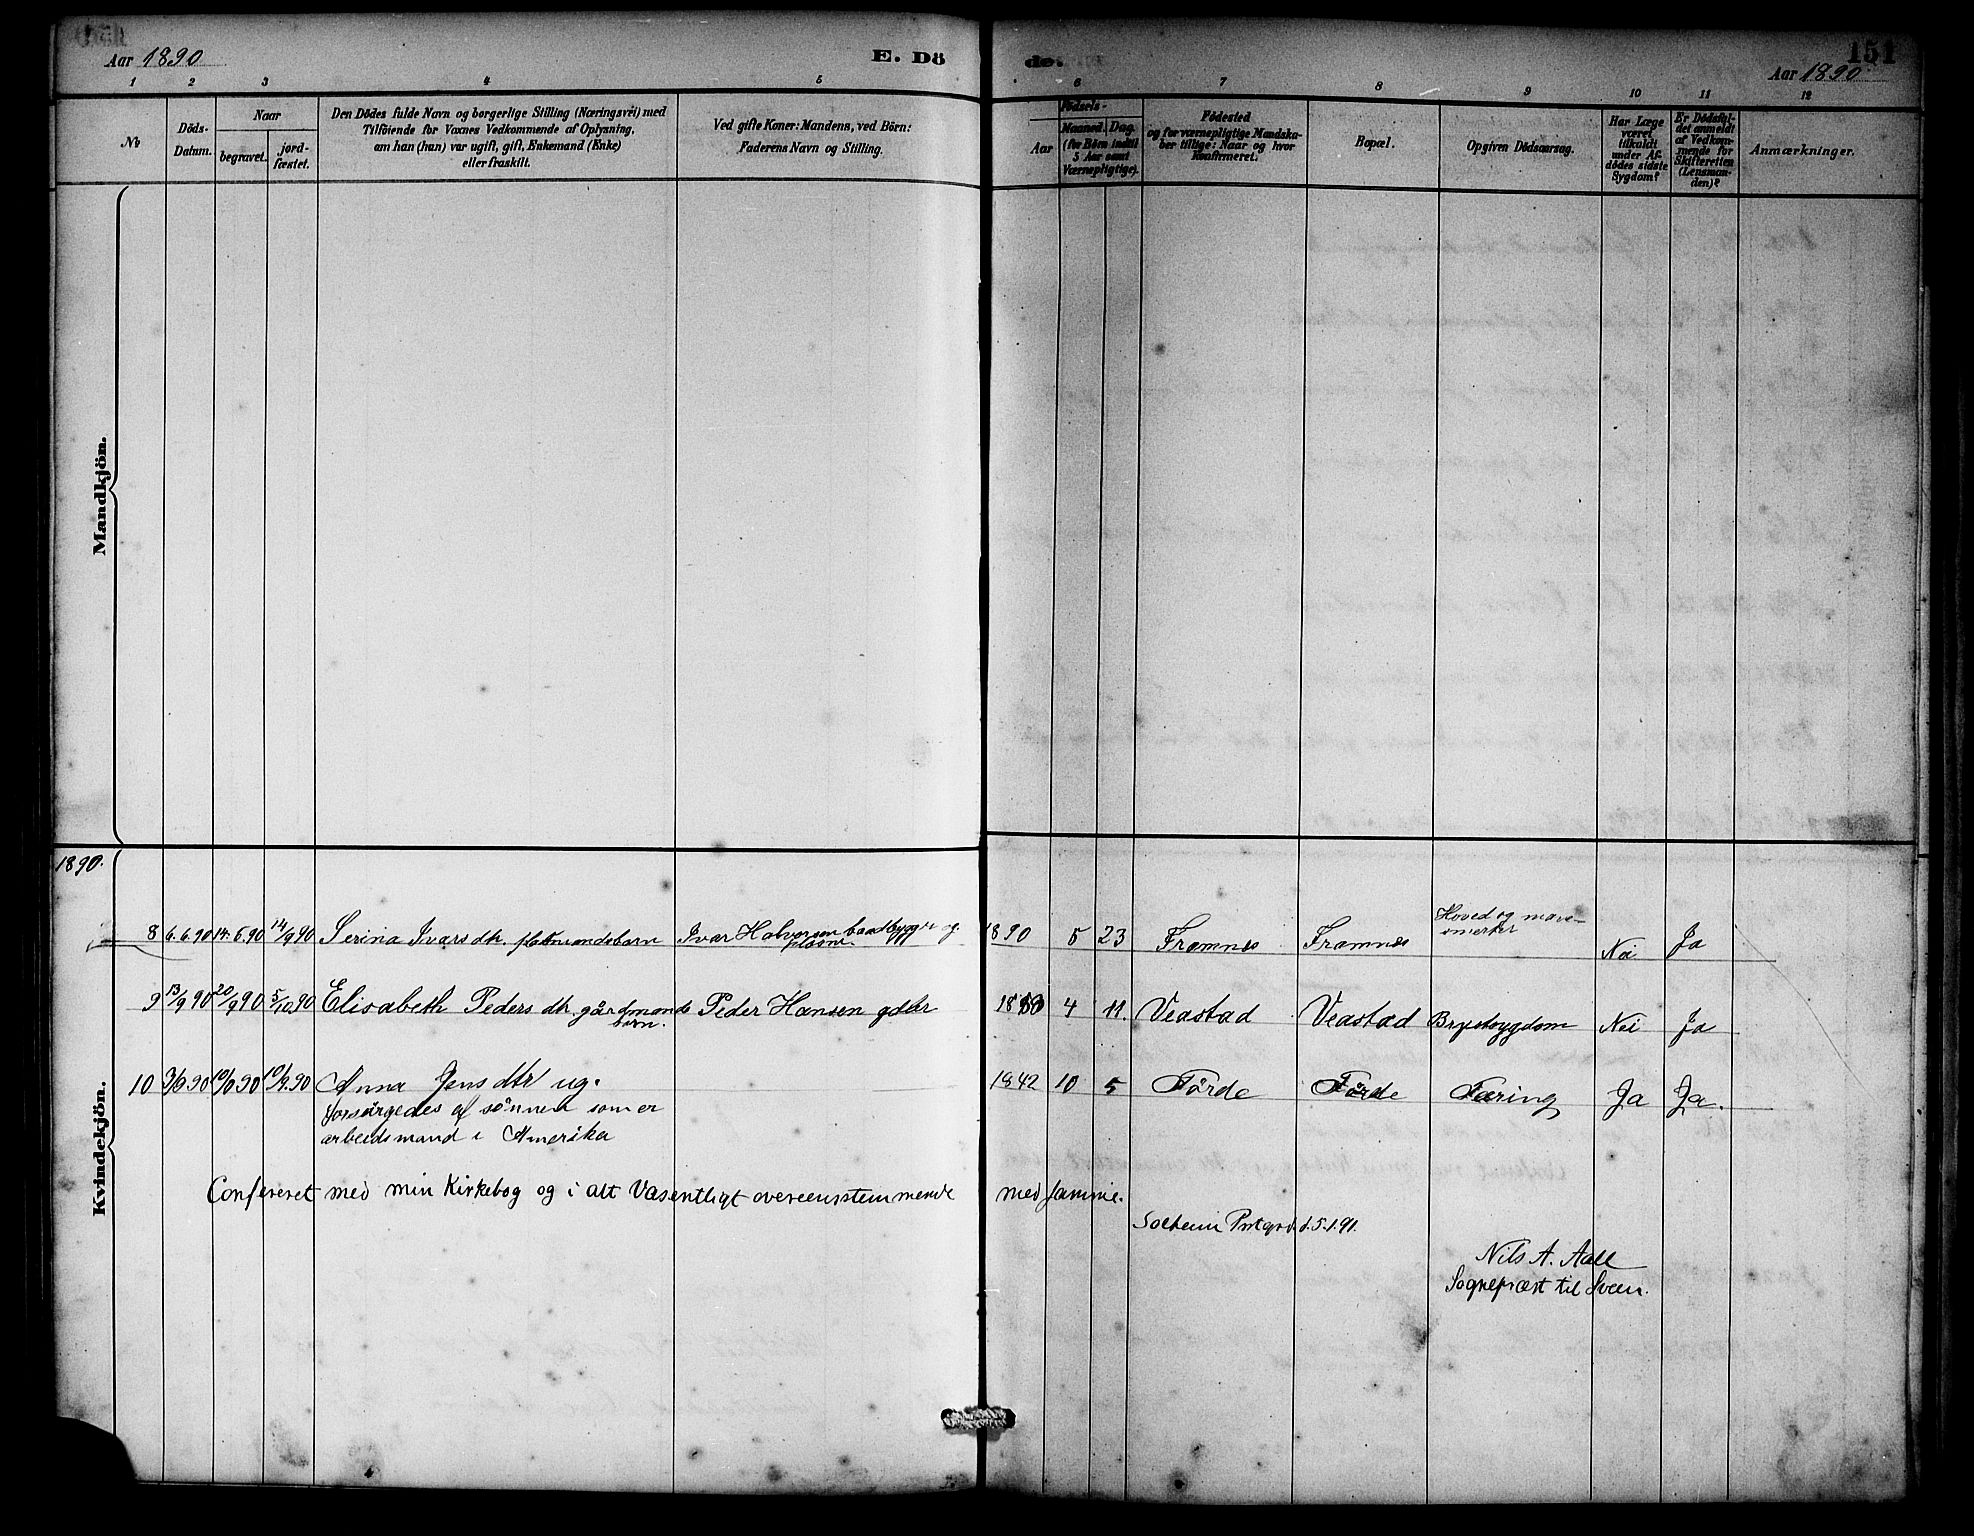 Aar 1890
E. Dö
de.
151
Aar 1890.
1 2 3 4 5 6 7 8 9 10 11 12
No
Döds-
Datum.
Naar
begravet.
jord-
fæstet.
Den Dödes fulde Navn og borgerlige Stilling (Næringsvei) med
Tilföiende for Voxnes Vedkommende af Oplysning,
om han (hun) var ugift, gift, Enkemand (Enke)
eller fraskilt.
Ved gifte Koner: Mandens, ved Börn:
Faderens Navn og Stilling.
Födsels-
Aar
Maaned.
Dag.
(for Börn indtil
5 Aar samt
Værnepligtige).
Födested
og for værnepligtige Mandska-
ber tillige: Naar og hvor
konfirmeret.
Bopæl.
Opgiven Dödsaarsag.
Har Læge
været
tilkaldt
under Af-
dödes sidste
Sygdom?
Er Dödsfal-
det anmeldt
af Vedkom-
mende for
Skifteretten
(Lensman-
den)?
Anmærkninger.
Mandkjön.
1890.
8 6.6.90 14.6.90 14/9 90 Serina Ivarsdtr. plasmandsbarn Ivar Halvorsen baadbygger og
plasm. 1890 5 23 Framnes Framnes Hoved og mave-
smerter Nei Ja
9 13/9 90 20/9 90 5/10 90 Elisabeth Peders dtr. gårdmands
barn. Peder Hansen gdbr 1890 4 11. Veastad Veastad Brystsygdom Nei Ja
10 3/9 90 10/9 90 10/9 90 Anna Jens dtr ug. 1842 10 5 Förde Förde Tæring Ja Ja.
forsörgedes af sönnen som er
arbeidsmand i Amerika
Kvindekjön.
Confereret med min Kirkebog og i alt Væsentligt overeensstemmende med samme.
Solheim Prstgrd d. 5.1.91.
Nils A. Aall
Sognepræst til Sveen.